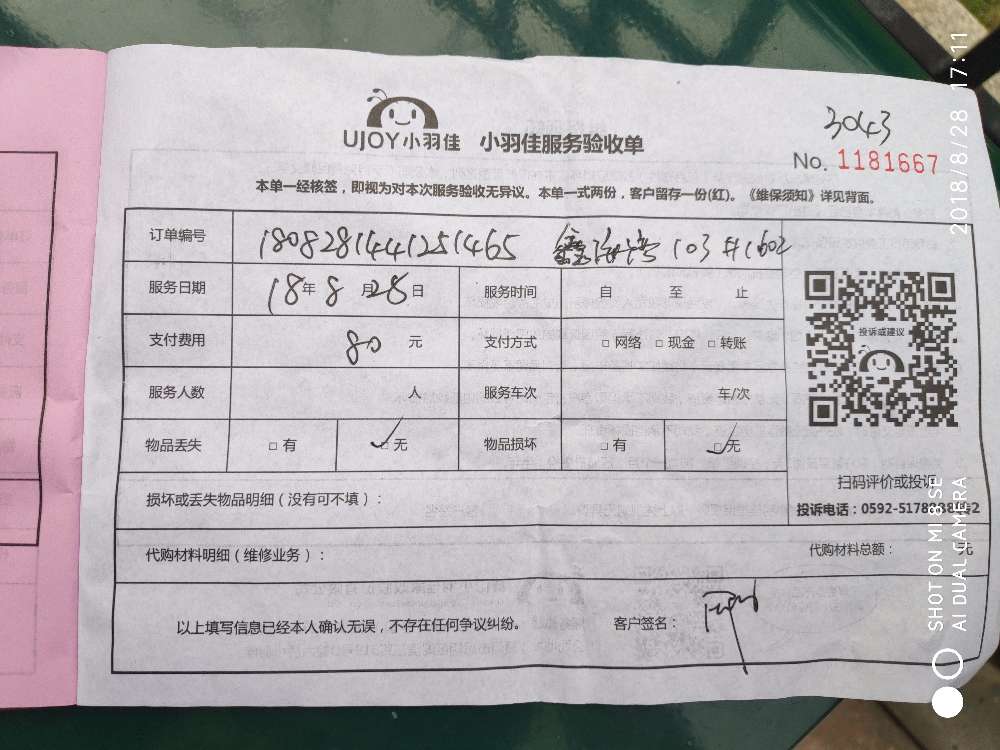 3043
UJOY小羽佳 小羽佳服务验收单
No. 1181667
本单一经核签，即视为对本次服务验收无异议。本单一式两份，客户留存一份(红)。《维保须知》详见背面。
订单编号 1808281441251465 103#1602
服务日期 18年8月28日 服务时间 自 至 止
投诉或建议
支付费用 80元 支付方式 □网络 □现金 □转账
服务人数 人 服务车次 车/次
物品丢失 □有 □无 物品损坏 □有 □无
扫码评价或投诉
损坏或丢失物品明细（没有可不填）：
投诉电话：0592-5178
代购材料明细（维修业务）： 代购材料总额： 元
以上填写信息已经本人确认无误，不存在任何争议纠纷。 客户签名：
SHOT ON MI 8 SE
AI DUAL CAMERA
2018/8/28 17:11